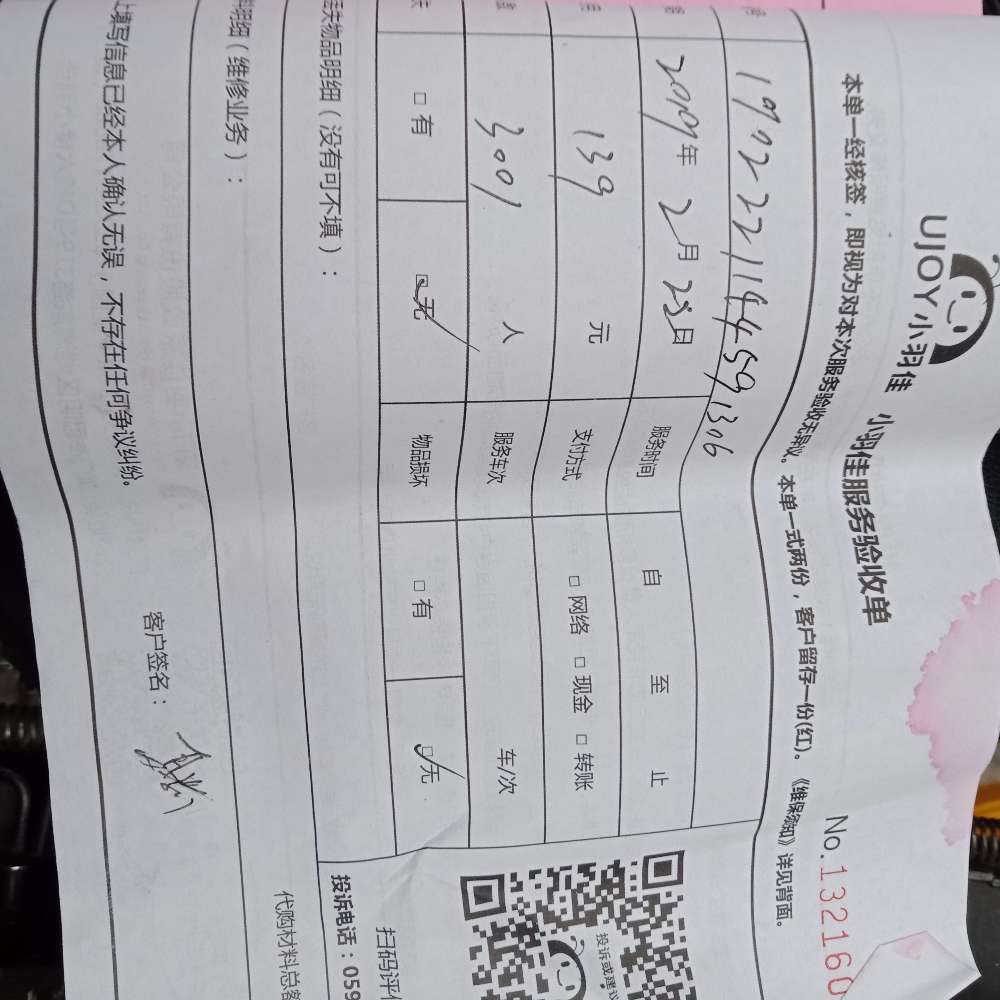 UJOY小羽佳
小羽佳服务验收单
No.132160
本单一经核签，即视为对本次服务验收无异议。本单一式两份，客户留存一份(红)。《维保须知》详见背面。
2019年2月25日 服务时间 自 至 止
139 元 支付方式 □ 网络 □ 现金 □ 转账
3001 人 服务车次 车/次
□ 有 □ 无 物品损坏 □ 有 □ 无
投诉或建议
失物品明细（没有可不填）：
明细（维修业务）：
扫码评价
投诉电话：059
代购材料总
填写信息已经本人确认无误，不存在任何争议纠纷。
客户签名：